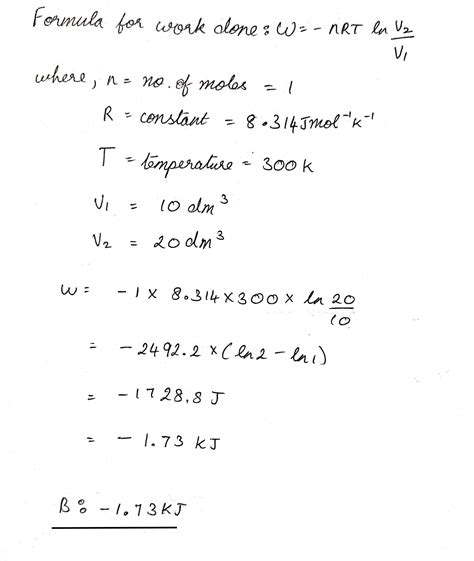 Formula for work done: W = - nRT ln V2/V1
where, n = no. of moles = 1
R = constant = 8.314 Jmol⁻¹K⁻¹
T = temperature = 300 K
V1 = 10 dm³
V2 = 20 dm³
W = - 1 × 8.314 × 300 × ln 20/10
= - 2492.2 × (ln2 - ln1)
= - 1728.8 J
= - 1.73 KJ
B: - 1.73 KJ